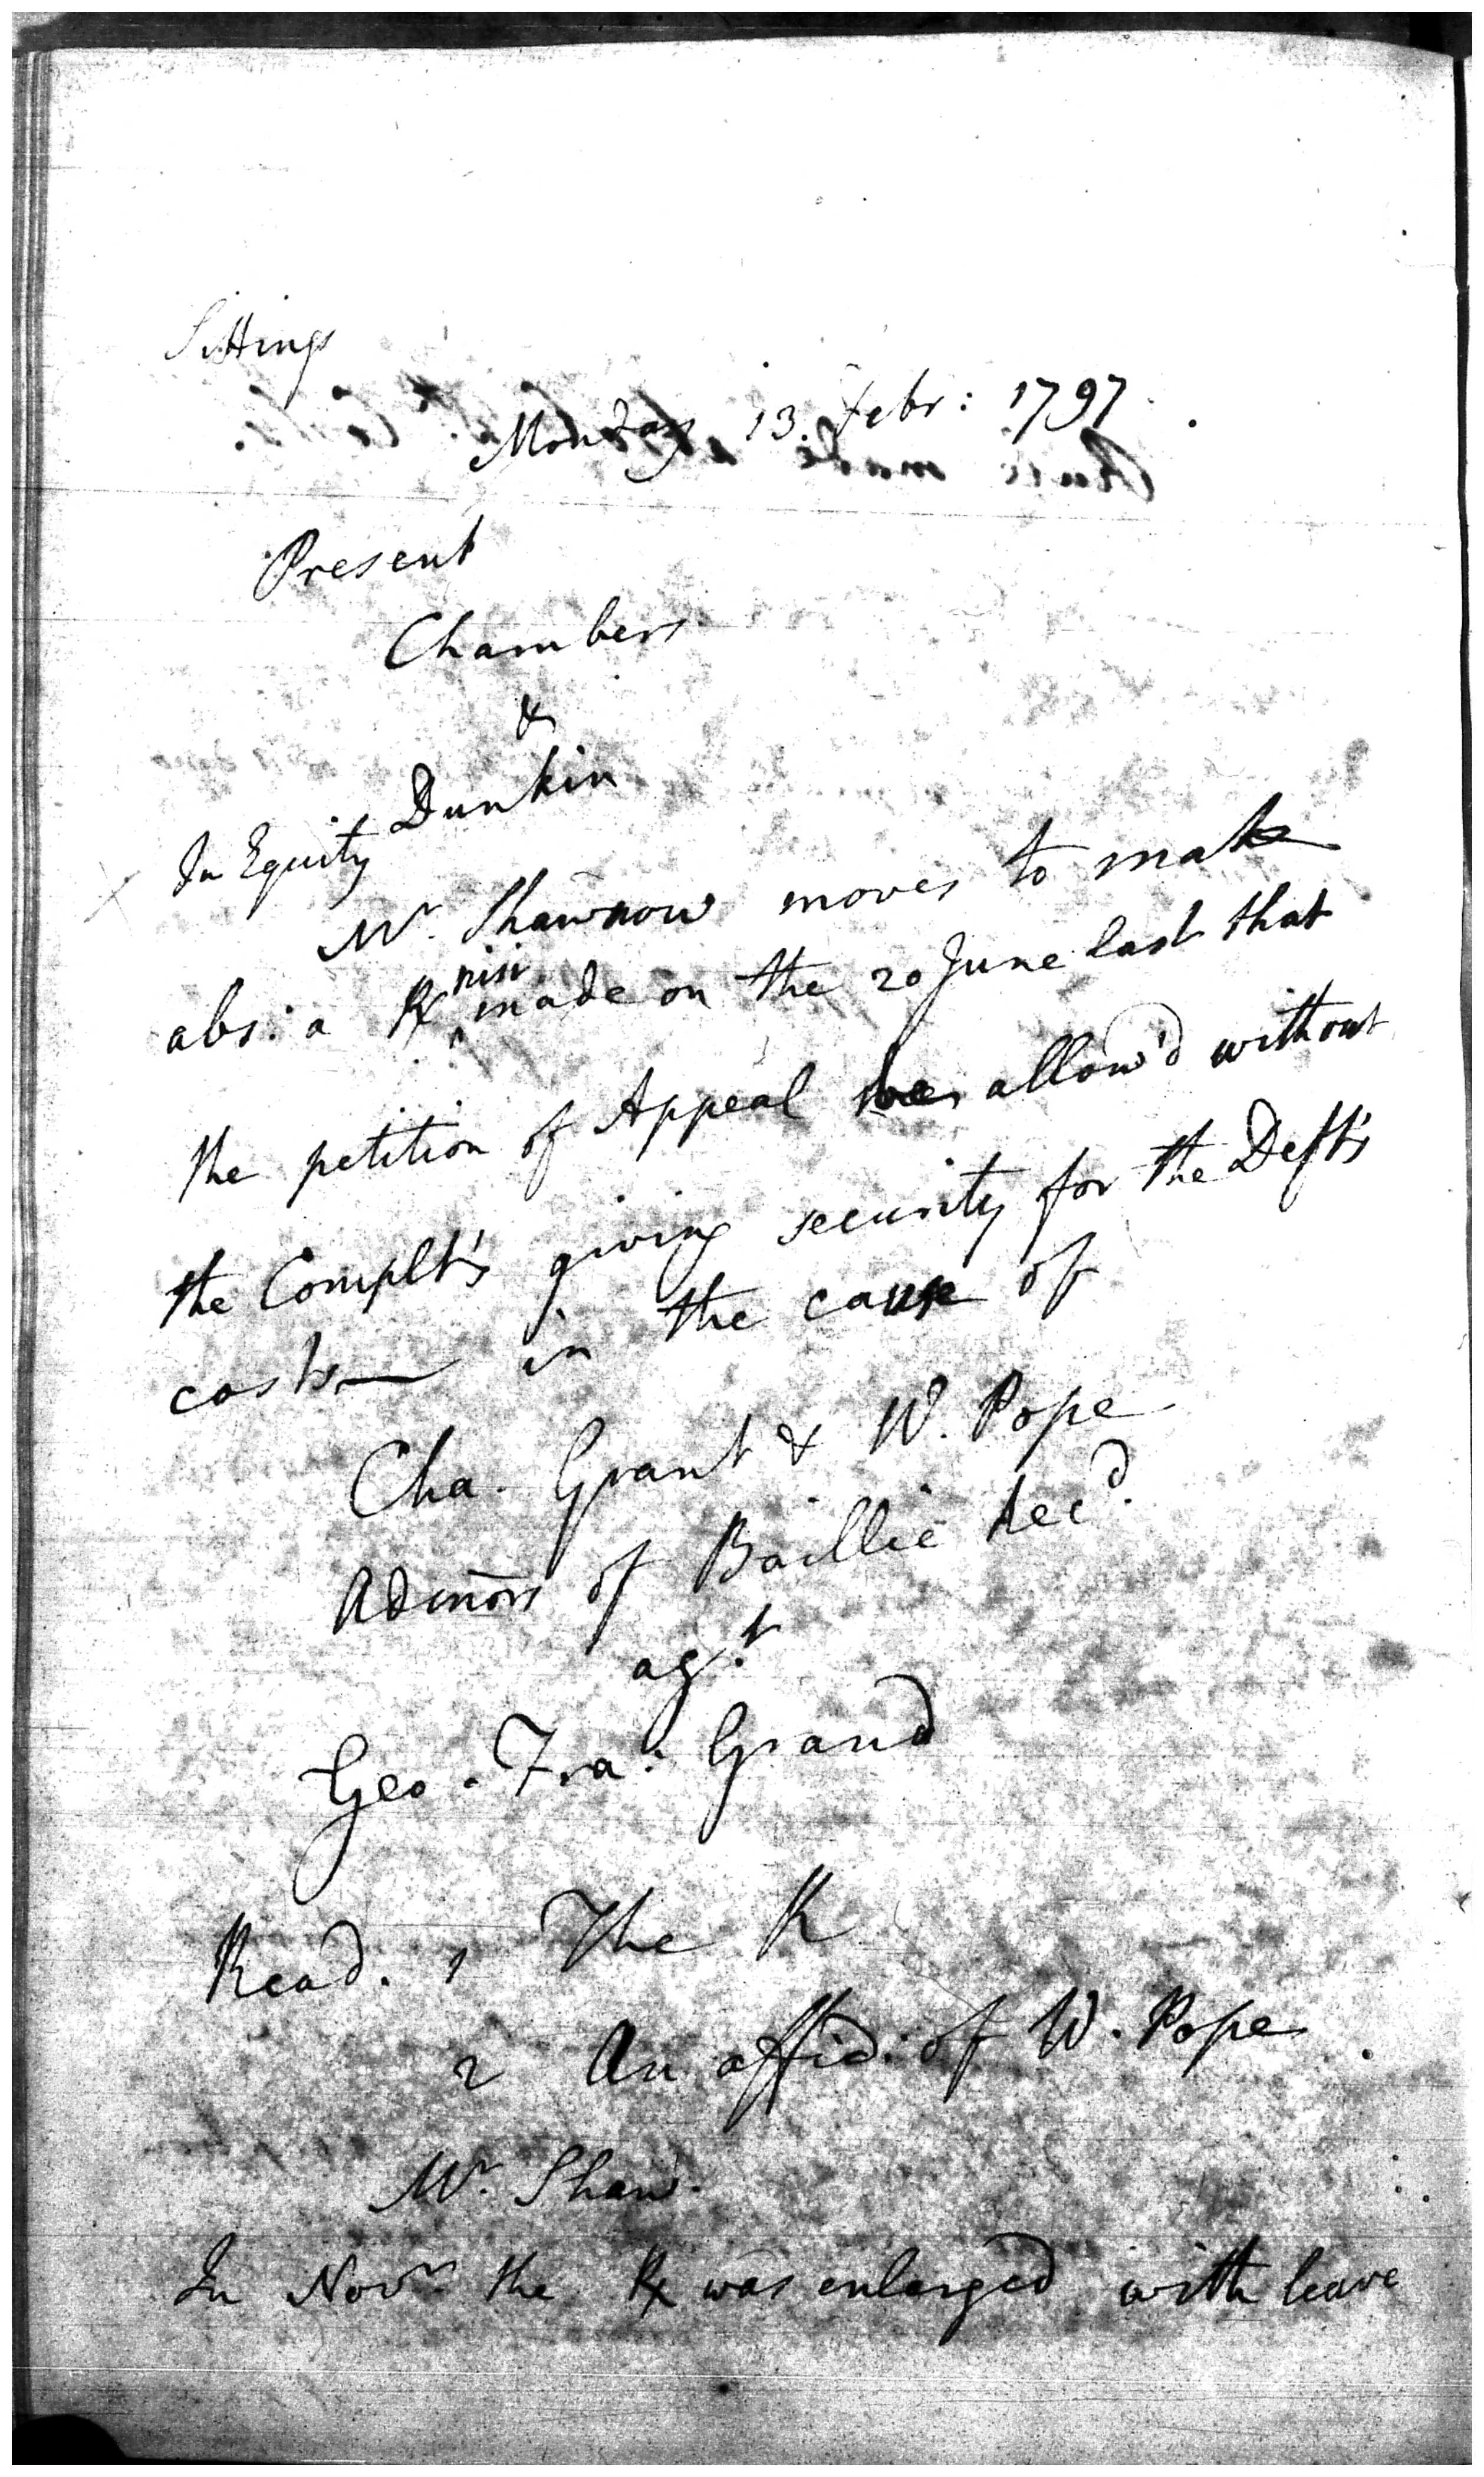 Sittings
Monday 13. Febr: 1797
Present
Chambers
&
Dunkin
In Equity
Mr. Shaw now moves to make
abs: a R nisi made on the 20 June last that
the petition of Appeal be allow'd without
the Complt's giving security for the Deft's
costs — in the cause of
Cha. Grant & W. Pope
Admors of Baillie decd.
agt.
Geo. Fra: Grand
Read. 1 The R
2 An affid: of W. Pope
Mr. Shaw.
In Novr. the R was enlarged with leave